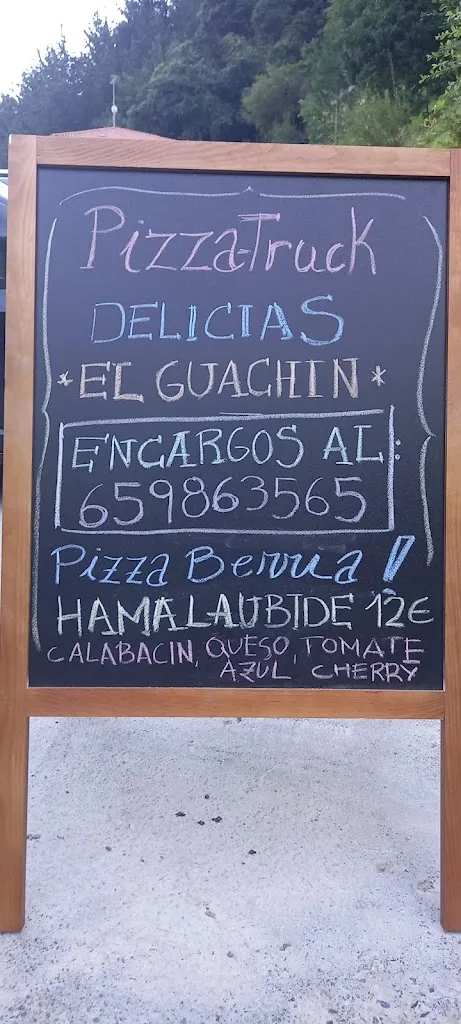 Pizza-Truck
DELICIAS
*EL GUACHIN*
ENCARGOS AL:
659863565
Pizza Berria!
HAMALAUBIDE 12€
CALABACIN, QUESO AZUL, TOMATE CHERRY